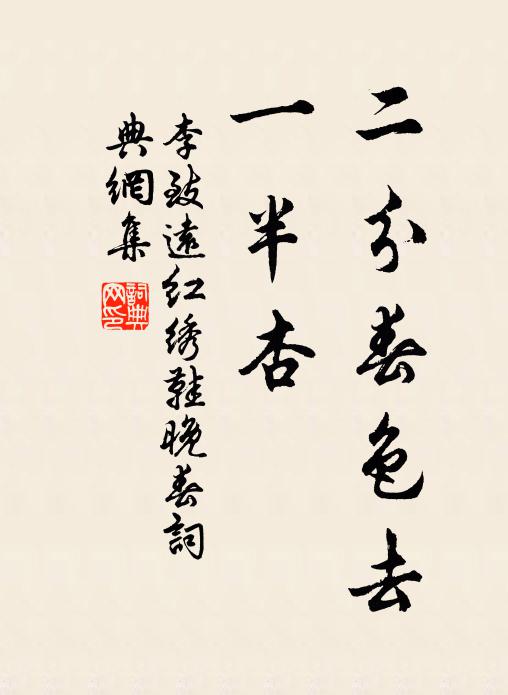 二分春色去
一半杏
李致遠红绣鞋晚春詞
典網集
詞典网印